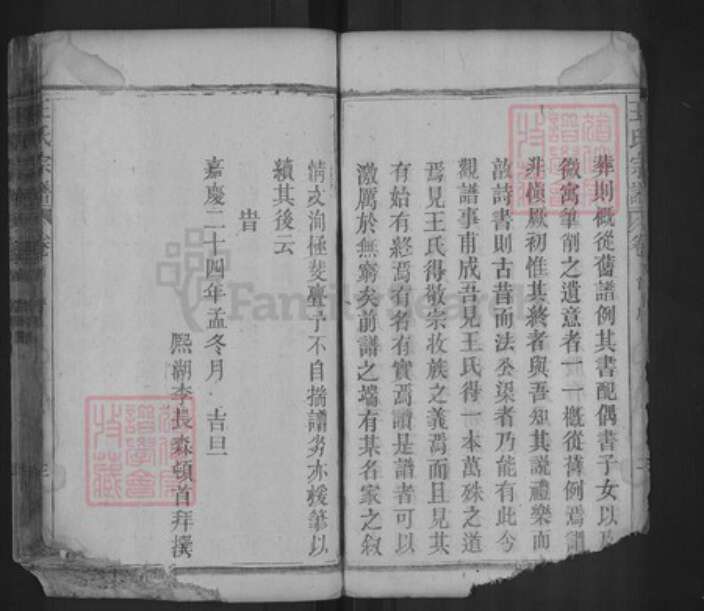 葬則概從舊譜例其書配偶書子女以及
微寓筆削之遺意者一一概從舊例焉譜
非慎厥初惟其終者與吾知其說禮樂而
敦詩書則古昔而法公渠者乃能有此今
觀譜事甫成吾見王氏得一本萬殊之道
焉見王氏得敬宗收族之義焉而且見其
有始有終焉有名有實焉讀是譜者可以
激厲於無窮矣前譜之端有某名家之敘
情文洵極斐亹予不自揣譾劣亦援筆以
續其後云
旹
嘉慶二十四年孟冬月 吉旦
熙湖李長森頓首拜撰
王氏宗譜 卷
王氏宗譜 卷
FamilySearch